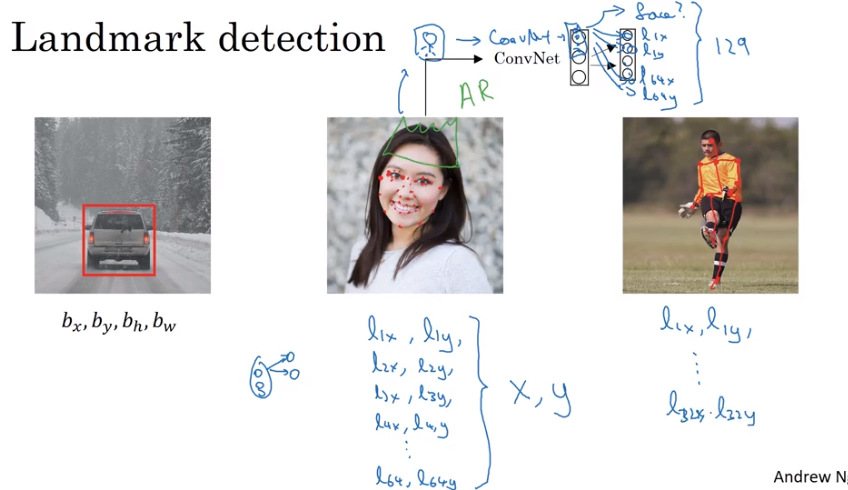 Landmark detection
→ ConvNet →
ConvNet
face?
l1x
l1y
l64x
l64y
129
AR
bx, by, bh, bw
l1x, l1y,
l2x, l2y,
l3x, l3y,
l4x, l4y
⋮
l64, l64y
x, y
l1x, l1y,
⋮
l32x, l32y
Andrew N